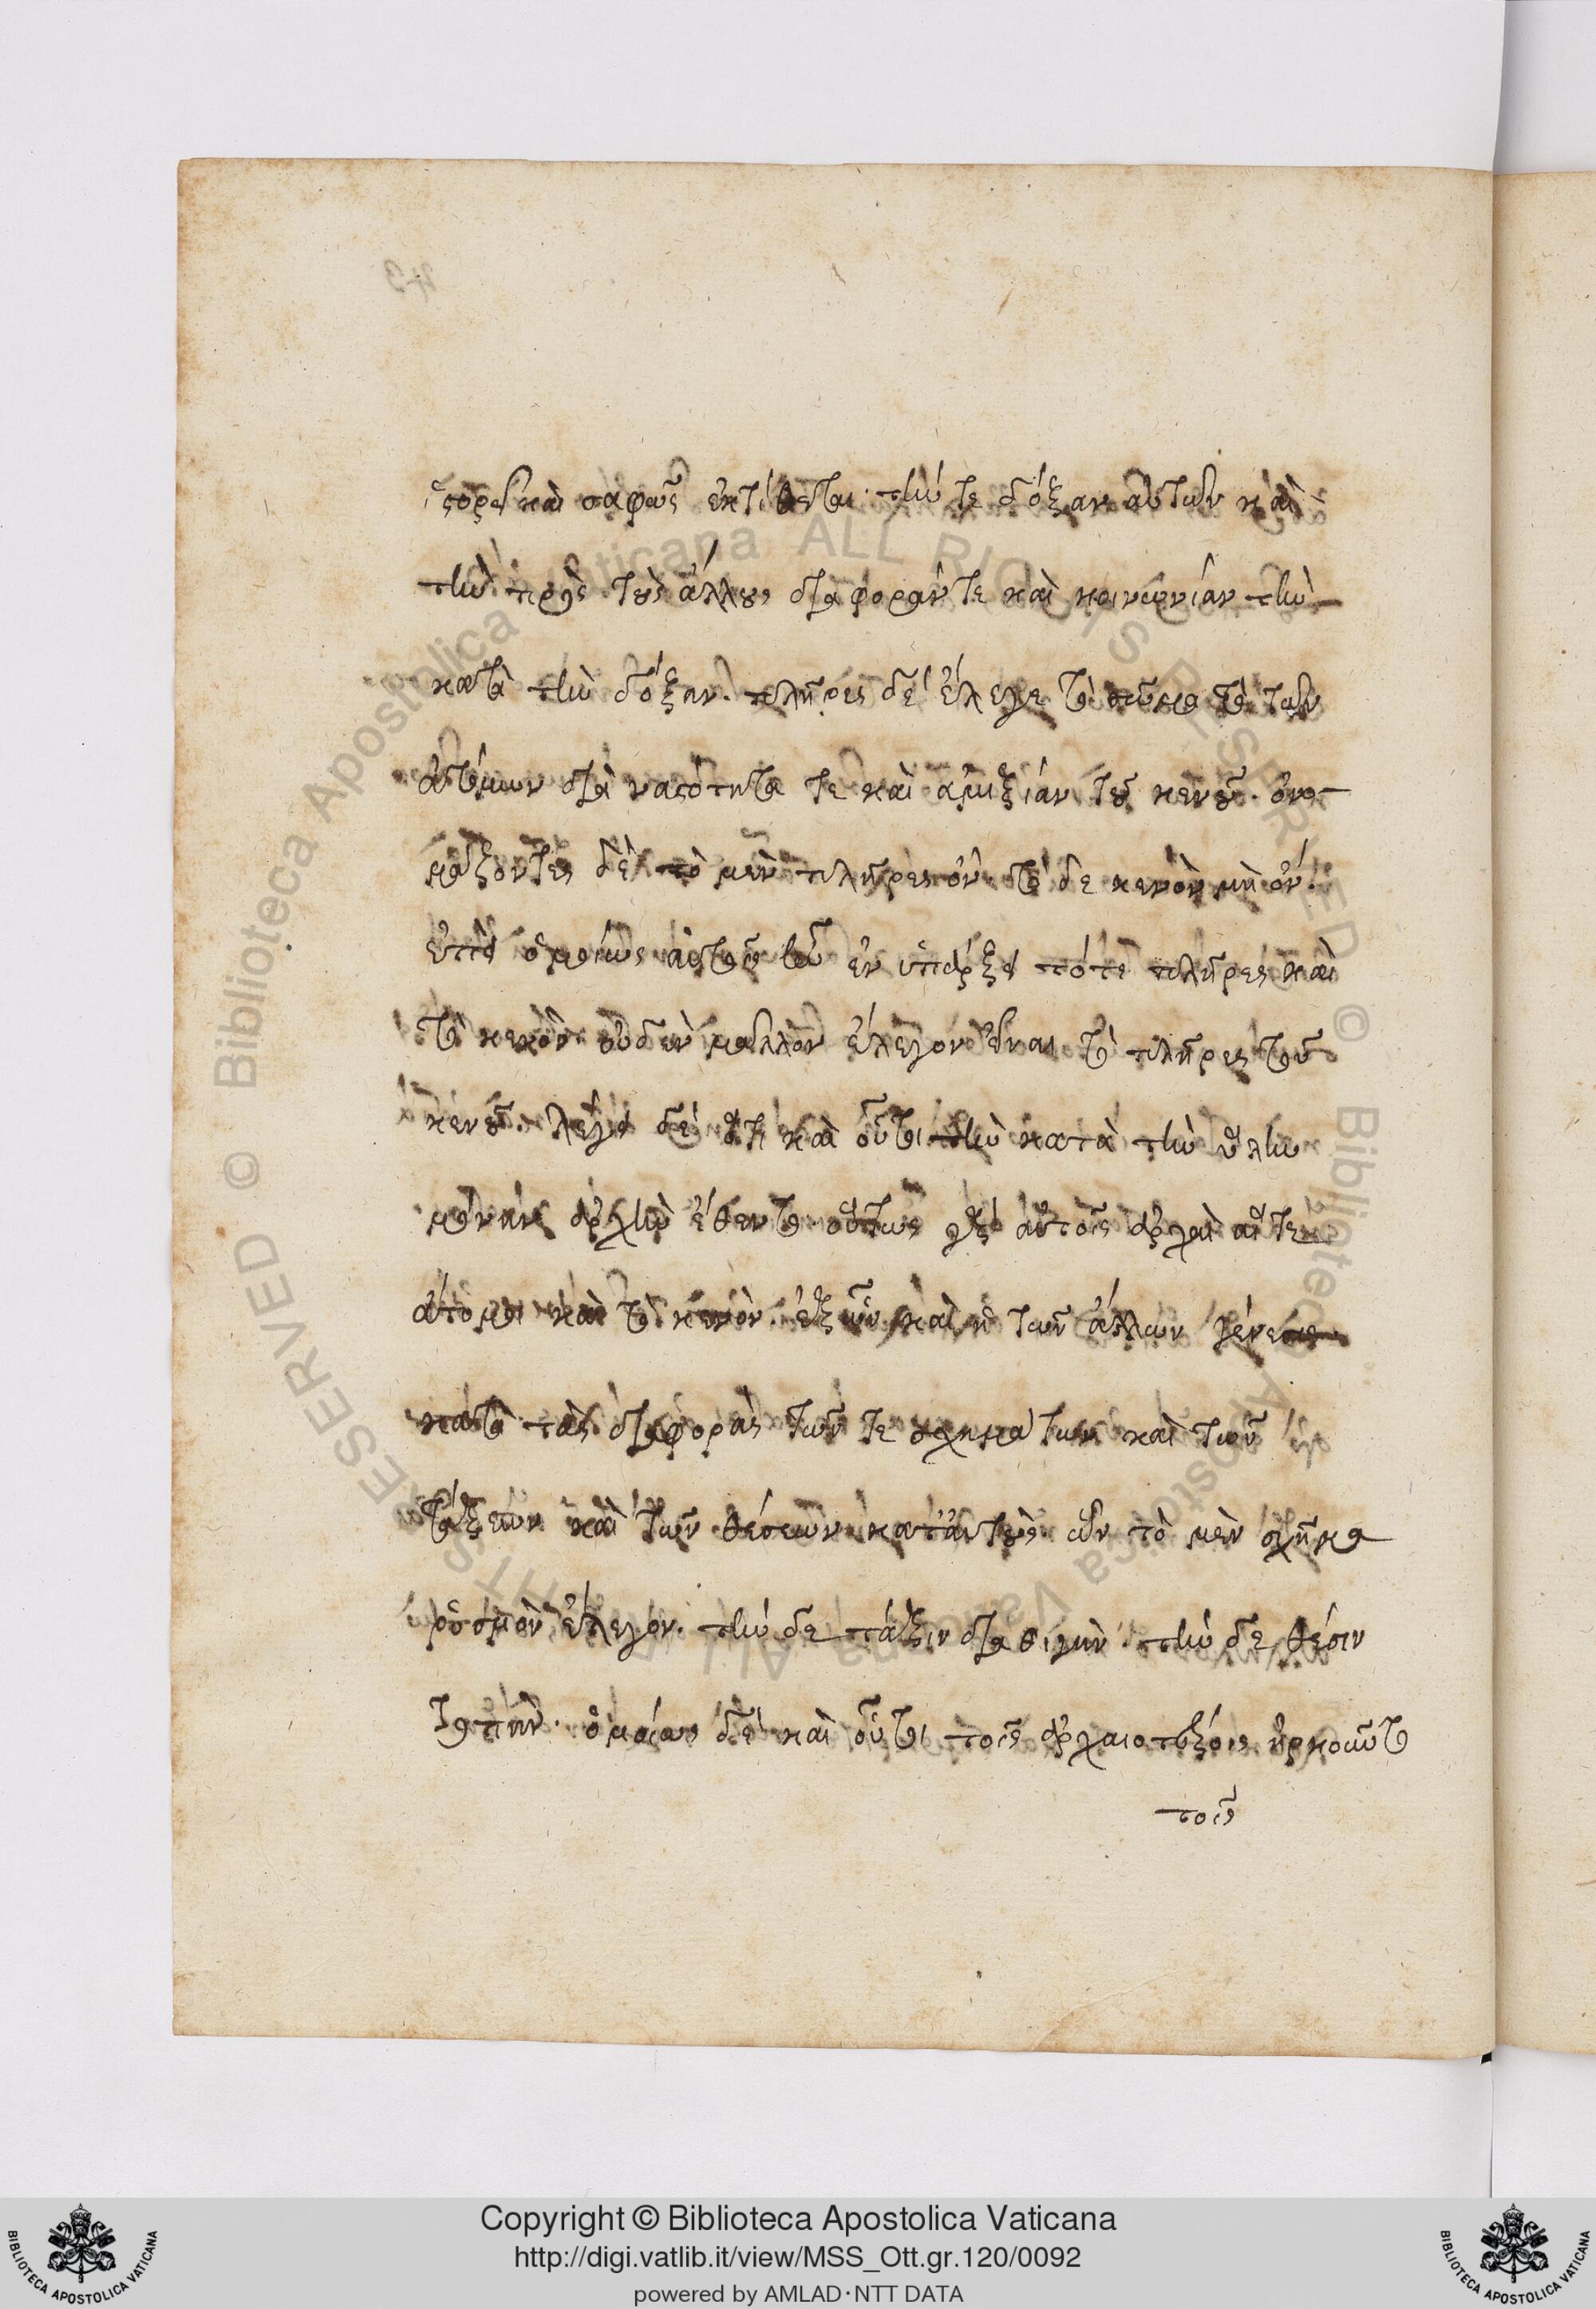 ἱστορεῖ καὶ σαφῶς ἐκτίθεται τήν τε δόξαν αὐτῶν καὶ
τὴν πρὸς τοὺς ἄλλους διαφοράν τε καὶ κοινωνίαν τὴν
κατὰ τὴν δόξαν. πλῆρες δὲ ἔλεγε τὸ σῶμα τὸ τῶν
ἀτόμων διὰ ναστότητά τε καὶ ἀμιξίαν τοῦ κενοῦ. ὀνο
μάζοντες δὲ τὸ μὲν πλῆρες ὂν τὸ δὲ κενὸν μὴ ὄν.
ἐπεὶ ὁμοίως αὐτοῖς ἦν ἐν ὑπάρξει τότε πλῆρες καὶ
τὸ κενὸν οὐδὲν μᾶλλον ἔλεγον εἶναι τὸ πλῆρες τοῦ
κενοῦ. λέγει δὲ ὅτι καὶ οὗτοι τὴν κατὰ τὴν ὕλην
μόνην ἀρχὴν ἔθεντο. οὕτως γὰρ αὐτοῖς ἀρχαὶ αἵ τε
ἄτομοι καὶ τὸ κενὸν. ἐξ ὧν καὶ ἡ τῶν ἄλλων γένεσις
κατὰ τὰς διαφορὰς τῶν τε σχημάτων καὶ τῶν
τάξεων καὶ τῶν θέσεων κατ' αὐτοὺς ὧν τὸ μὲν σχῆμα
ῥυσμὸν ἔλεγον. τὴν δὲ τάξιν διαθιγὴν. τὴν δὲ θέσιν
τροπήν. ὁμοίως δὲ καὶ οὗτοι τοῖς ἀρχαιοτέροις
τοῖς
Copyright © Biblioteca Apostolica Vaticana
http://digi.vatlib.it/view/MSS_Ott.gr.120/0092
powered by AMLAD · NTT DATA
BIBLIOTECA APOSTOLICA VATICANA
BIBLIOTECA APOSTOLICA VATICANA
© Biblioteca Apostolica Vaticana ALL RIGHTS RESERVED © Biblioteca Apostolica Vaticana ALL RIGHTS RESERVED